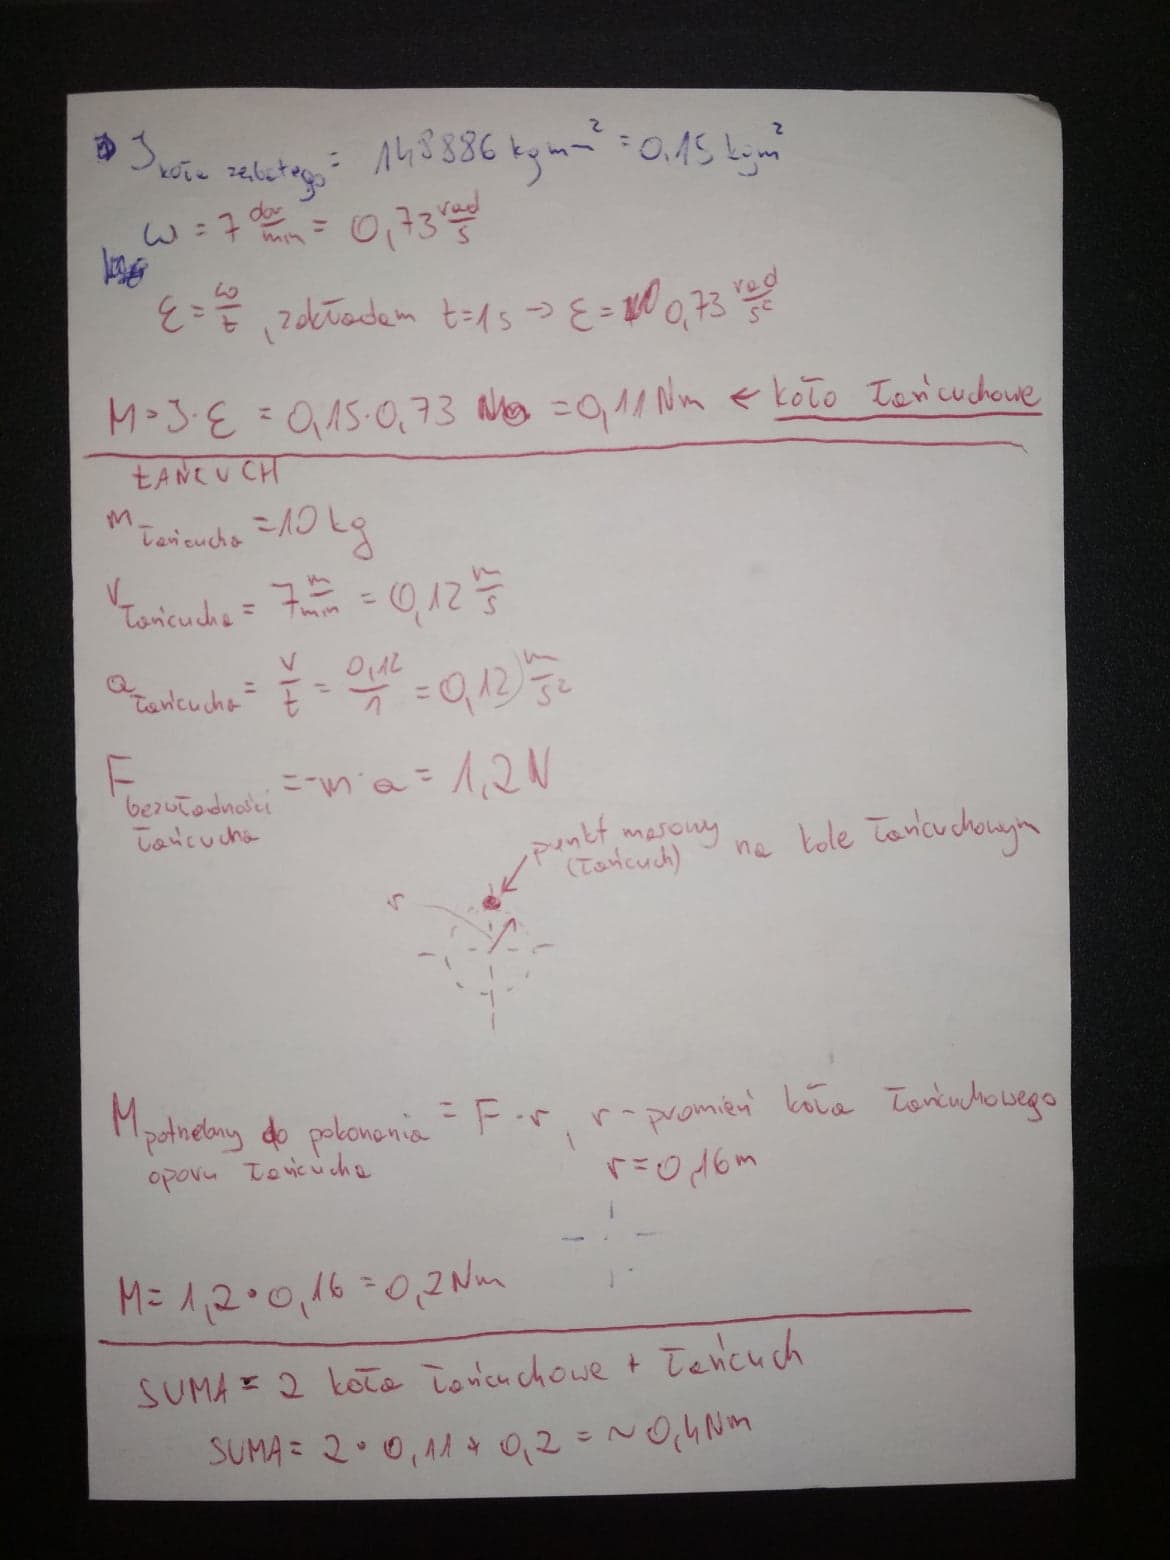 J koła zębatego = 148886 kgmm² = 0,15 kgm²
ω = 7 obr/min = 0,73 rad/s
ε = ω/t , zakładam t=1s → ε = 0,73 rad/s²
M = J·ε = 0,15·0,73 = 0,11 Nm ← koło łańcuchowe
ŁAŃCUCH
m łańcucha = 10 kg
v łańcucha = 7 m/min = 0,12 m/s
a łańcucha = v/t = 0,12/1 = 0,12 m/s²
F bezwładności łańcucha = -m·a = 1,2 N
punkt masowy (łańcuch) na kole łańcuchowym
r
M potrzebny do pokonania oporu łańcucha = F·r, r - promień koła łańcuchowego
r = 0,16 m
M = 1,2·0,16 = 0,2 Nm
SUMA = 2 koła łańcuchowe + łańcuch
SUMA = 2·0,11 + 0,2 = ~0,4 Nm